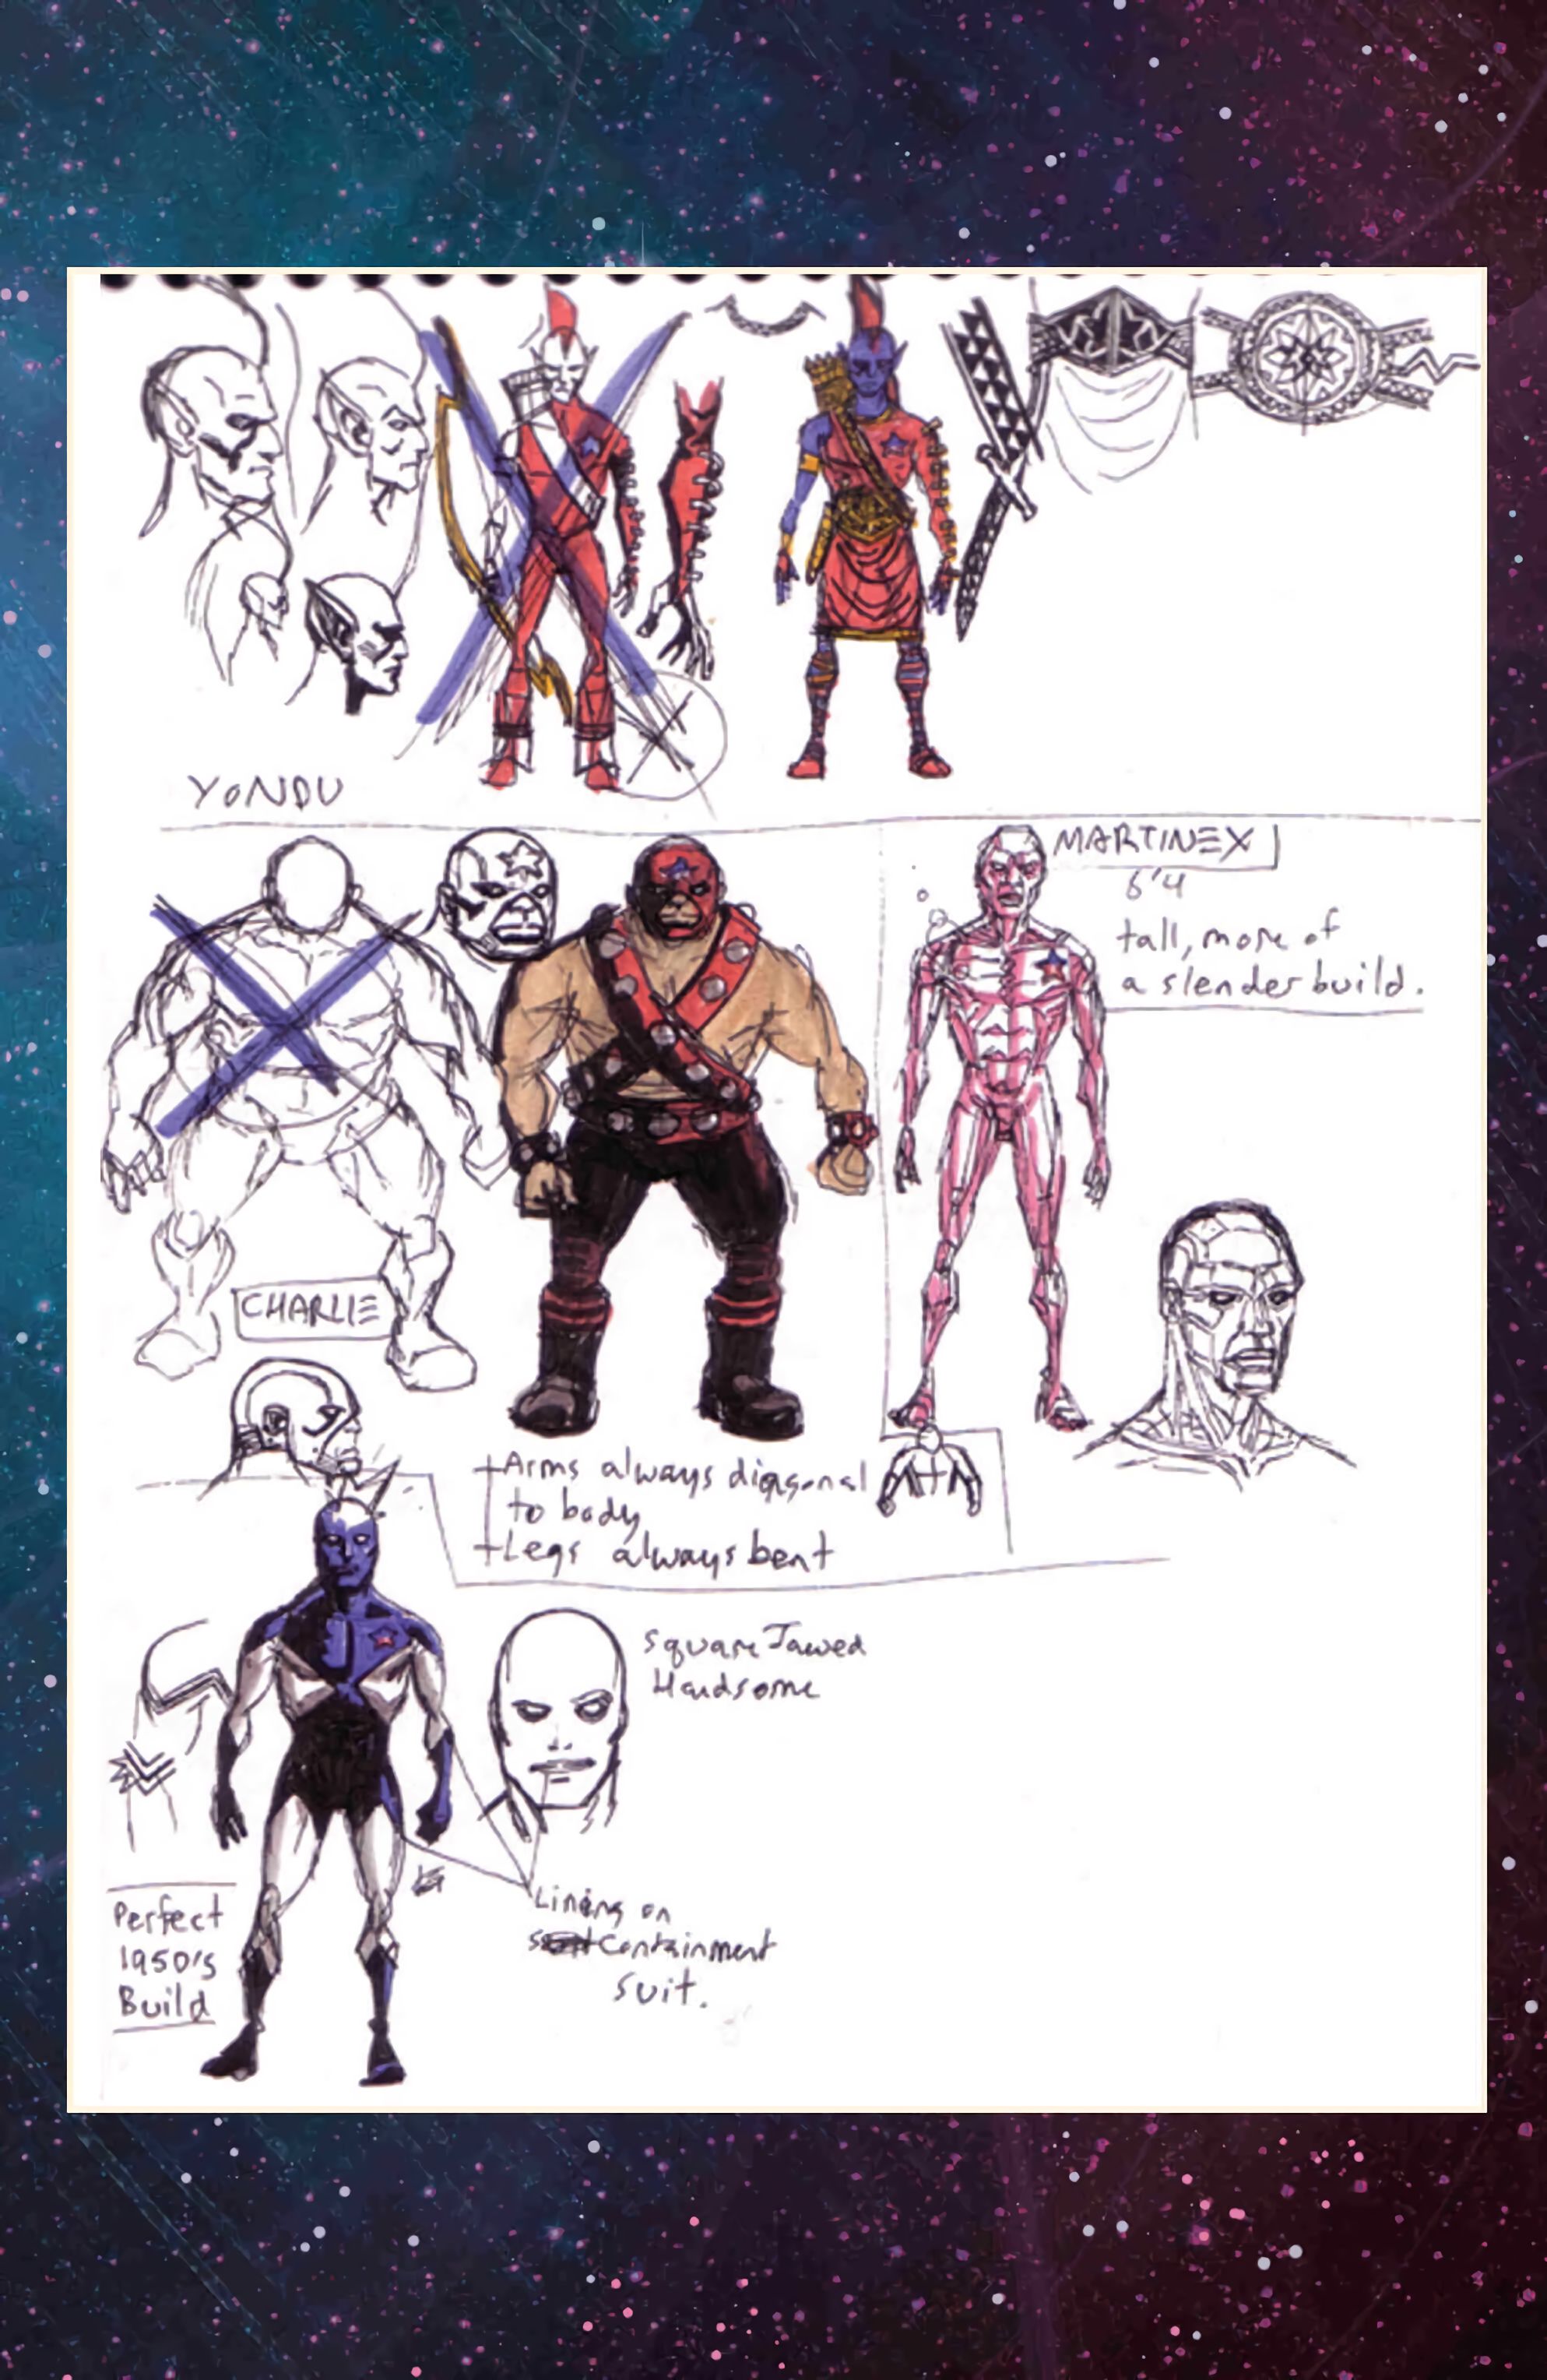 YONDU
MARTINEX
6'4
tall, more of
a slender build.
CHARLIE
Arms always diagonal
to body
Legs always bent
Square Jawed
Handsome
Perfect
1950's
Build
Lining on
Containment
suit.